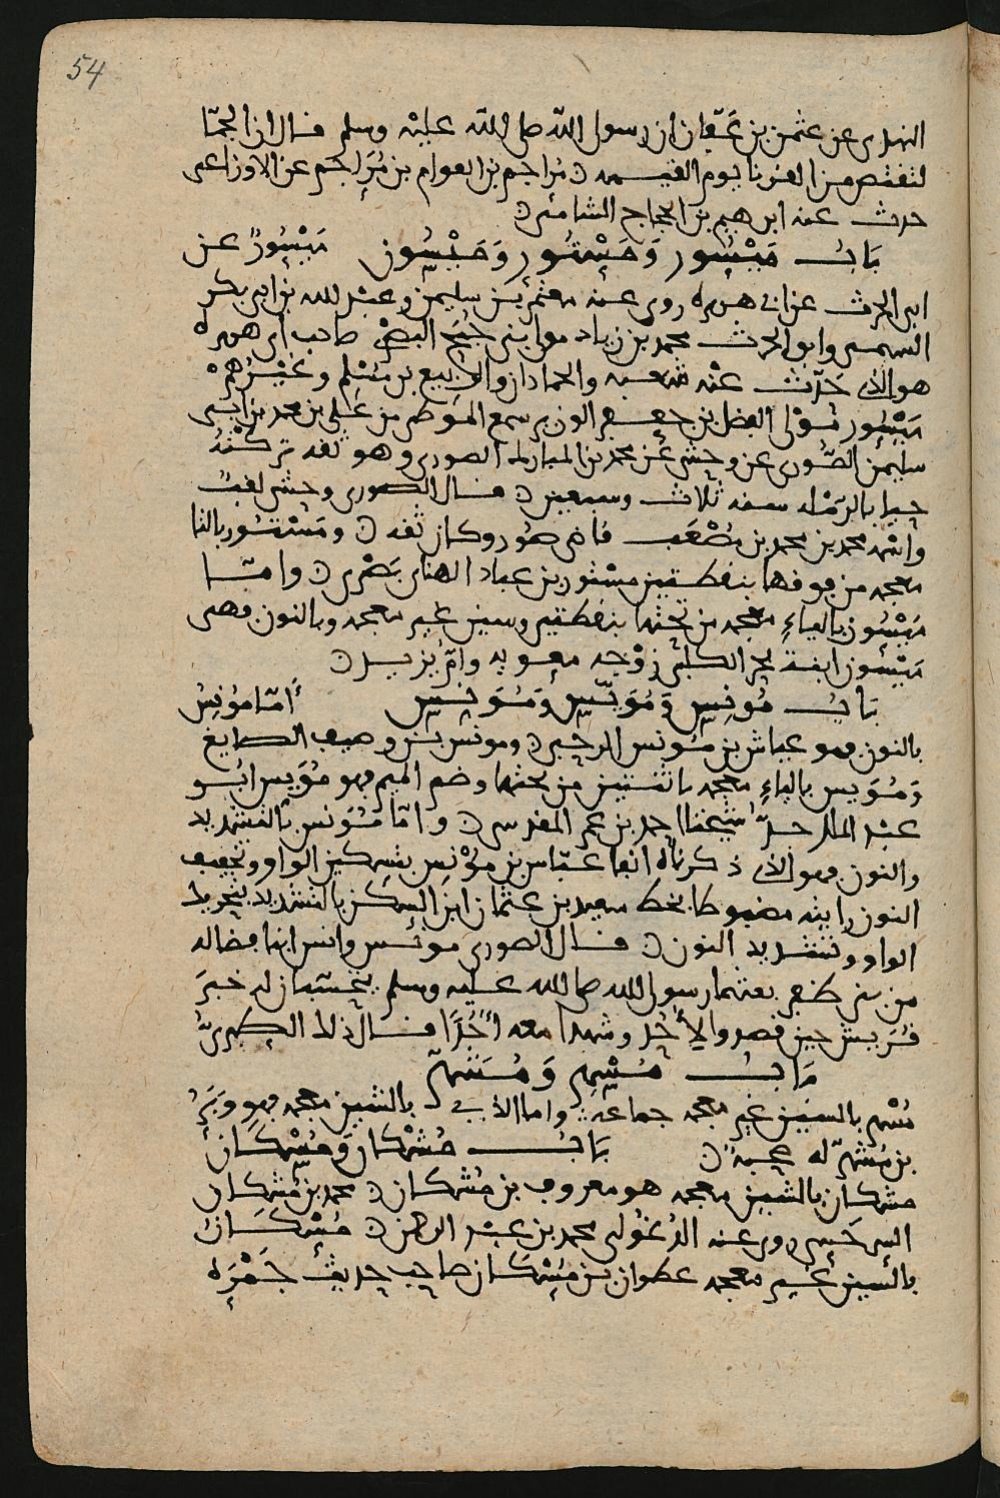 54
النهدي عن عثمن بن عفان ان رسول الله صلى الله عليه وسلم قال ان الجما
لتقتص من القرنا يوم القيمه ن مزاجم بن العوام بن مراجم عن الاوزاعى
حدث عنه ابرهيم بن الحجاج الشامى ن
باب ميسور ومستور وميسون ميسور عن
ابى الحرث عن ابى هريره روى عنه معتمر بن سليمن وعبد الله بن ابى بكر
السهمى وابو الحرث محمد بن زياد مولى بنى جمح البصرى صاحب ابى هريره
هو الذى حدث عنه شعبه والحمادان والربيع بن مسلم وغيرهم
ميسور مولى الفضل بن جعفر الوزير سمع الموطا من على بن محمد بن ابى
سليمن الصورى عن وحشى عن محمد بن المبارك الصورى وهو ثقه تركته
حيا بالرمله سنه ثلاث وسبعين ن قال الصورى وحشى لقب
واسمه محمد بن محمد بن مصعب قاضى صور وكان ثقه ن ومستور بالتا
معجمه من فوقها بنقطتين مستور بن عباد الهنائى بصرى ن وامـا
ميسون بالياء معجمه من تحتها بنقطتين وسين غير معجمه وبالنون فهى
ميسون ابنة بحدل الكلبى زوجه معويه وام يزيد ن
باب مونس ومويس ومونس اما مونس
بالنون فهو عياش بن مونس الرحبى ن ومونس بن وصيف الصايغ
ومويس بالياء معجمه باثنتين من تحتها وضم الميم فهو مويس ابو
عبد الملك حدث شيخنا احمد بن عمر المقدسى ن واما مونس بالتشديد
والنون فهو الذى ذكرناه انفا عباس بن مونس بتسكين الواو وتخفيف
النون رايته مضبوطا بخط سعيد بن عثمان ابن السكن بالتشديد بتحريك
الواو وتشديد النون ن قال الصورى مونس وانس ابنا فضاله
من بنى ظفر بعثهما رسول الله صلى الله عليه وسلم يتحسسان له خبر
قريش حين قصدوا لاحد وشهدا معه احدا قال ذلك الطبرى
باب مسهر ومشهر
مسهر بالسين غير معجمه جماعه واما الذى بالشين معجمه فهو وبر
بن مشهر له صحبه ن باب مشكان ومسكان
مشكان بالشين معجمه هو معروف بن مشكان ن محمد بن مشكان
السرخسى روى عنه الدغولى محمد بن عبد الرحمن ن مسكان
بالسين غير معجمه عطوان بن مسكان صاحب حديث جمره